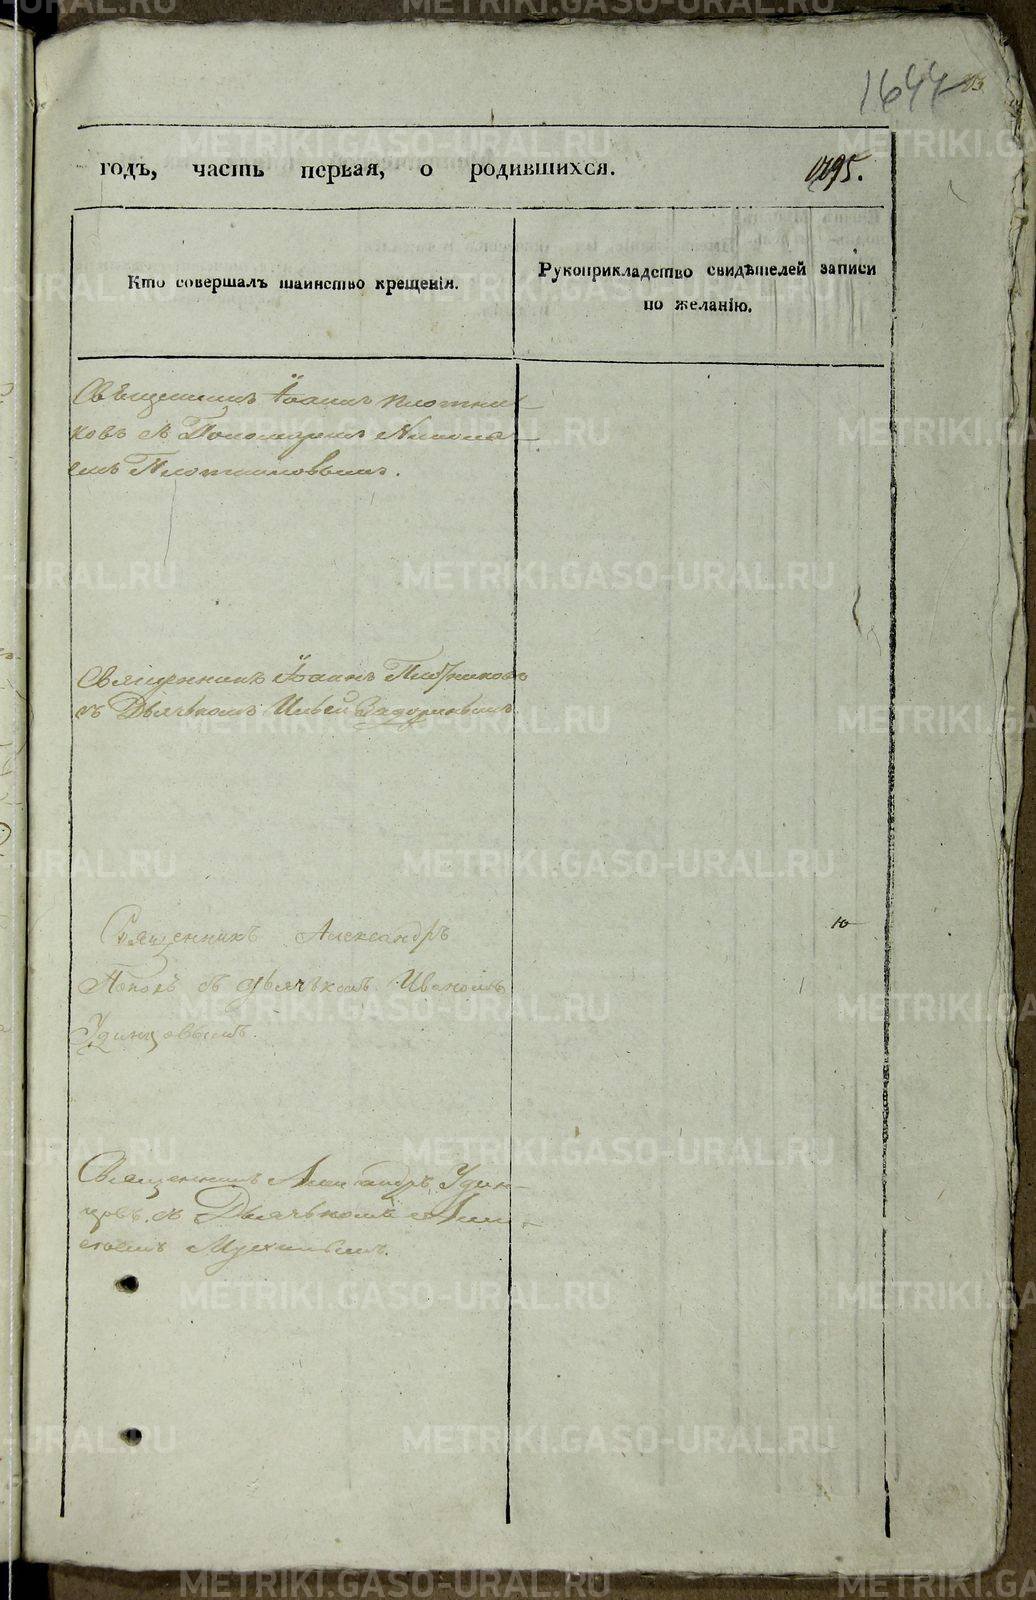 1644
годъ, часть первая, о родившихся. 1695.
Кто совершалъ таинство крещенія.
Рукоприкладство свидѣтелей записи
по желанію.
Священникъ Іоаннъ Плотни-
ковъ съ Пономаремъ Никола-
емъ Плотниковымъ.
Священникъ Іоаннъ Плотниковъ
съ Дьячкомъ Ильей
Священникъ Александръ
Поповъ съ дьячькомъ Иваномъ
Удинцовымъ.
Священникъ Александръ Удин-
цовъ съ Дьячькомъ
METRIKI.GASO-URAL.RU